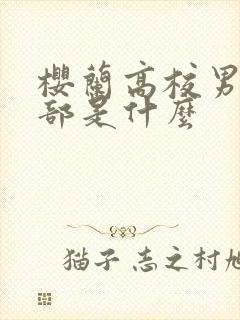 櫻蘭高校男
部是什麼
貓子 志之村旭